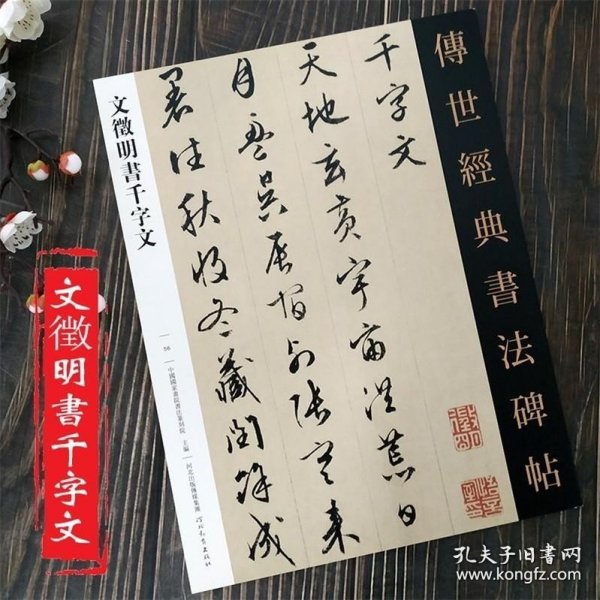 傳世經典書法碑帖
千字文
天地玄黃宇宙洪荒日
月盈昃辰宿列張寒来
暑往秋收冬藏閏餘成
文徵明書千字文
56
中國國家畫院書法篆刻院 主編
河北出版傳媒集團
河北教育出版社
文徵明書千字文
孔夫子旧書网
www.kongfz.com